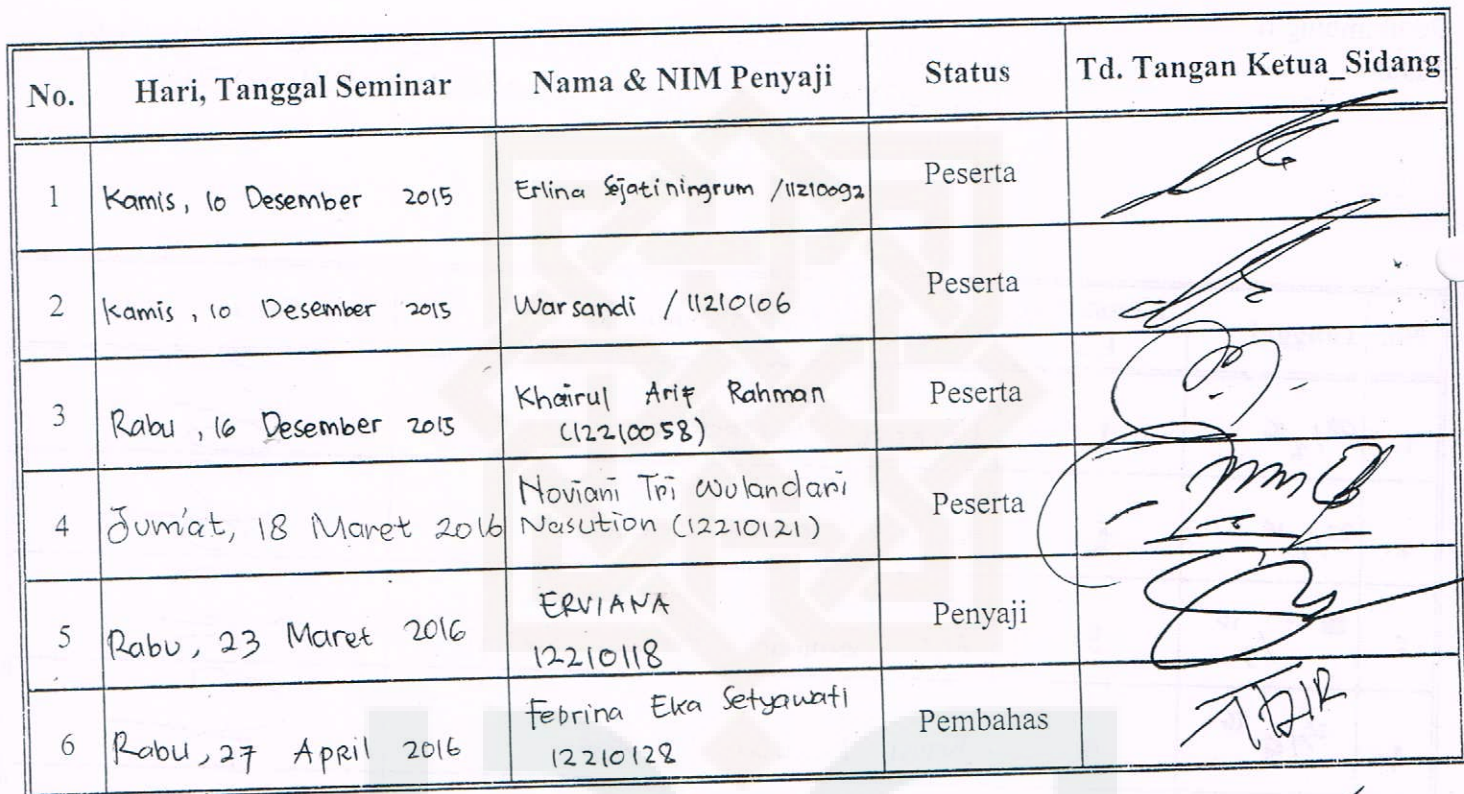 No. Hari, Tanggal Seminar Nama & NIM Penyaji Status Td. Tangan Ketua_Sidang
1 Kamis, 10 Desember 2015 Erlina Sejatiningrum /11210092 Peserta
2 Kamis, 10 Desember 2015 Warsandi / 11210106 Peserta
3 Rabu, 16 Desember 2015 Khairul Arif Rahman Peserta
(12210058)
4 Jum'at, 18 Maret 2016 Noviani Tri Wulandari Peserta
Nasution (12210121)
5 Rabu, 23 Maret 2016 ERVIANA Penyaji
12210118
6 Rabu, 27 April 2016 Febrina Eka Setyawati Pembahas
12210128